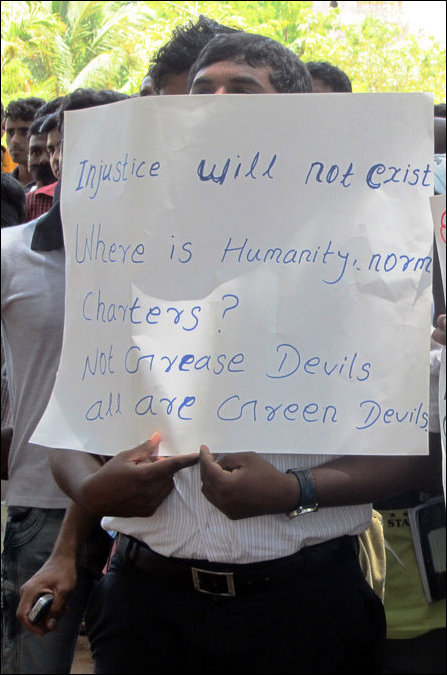 Injustice will not exist
Where is Humanity, norm
Charters?
Not Grease Devils
all are Green Devils
STA